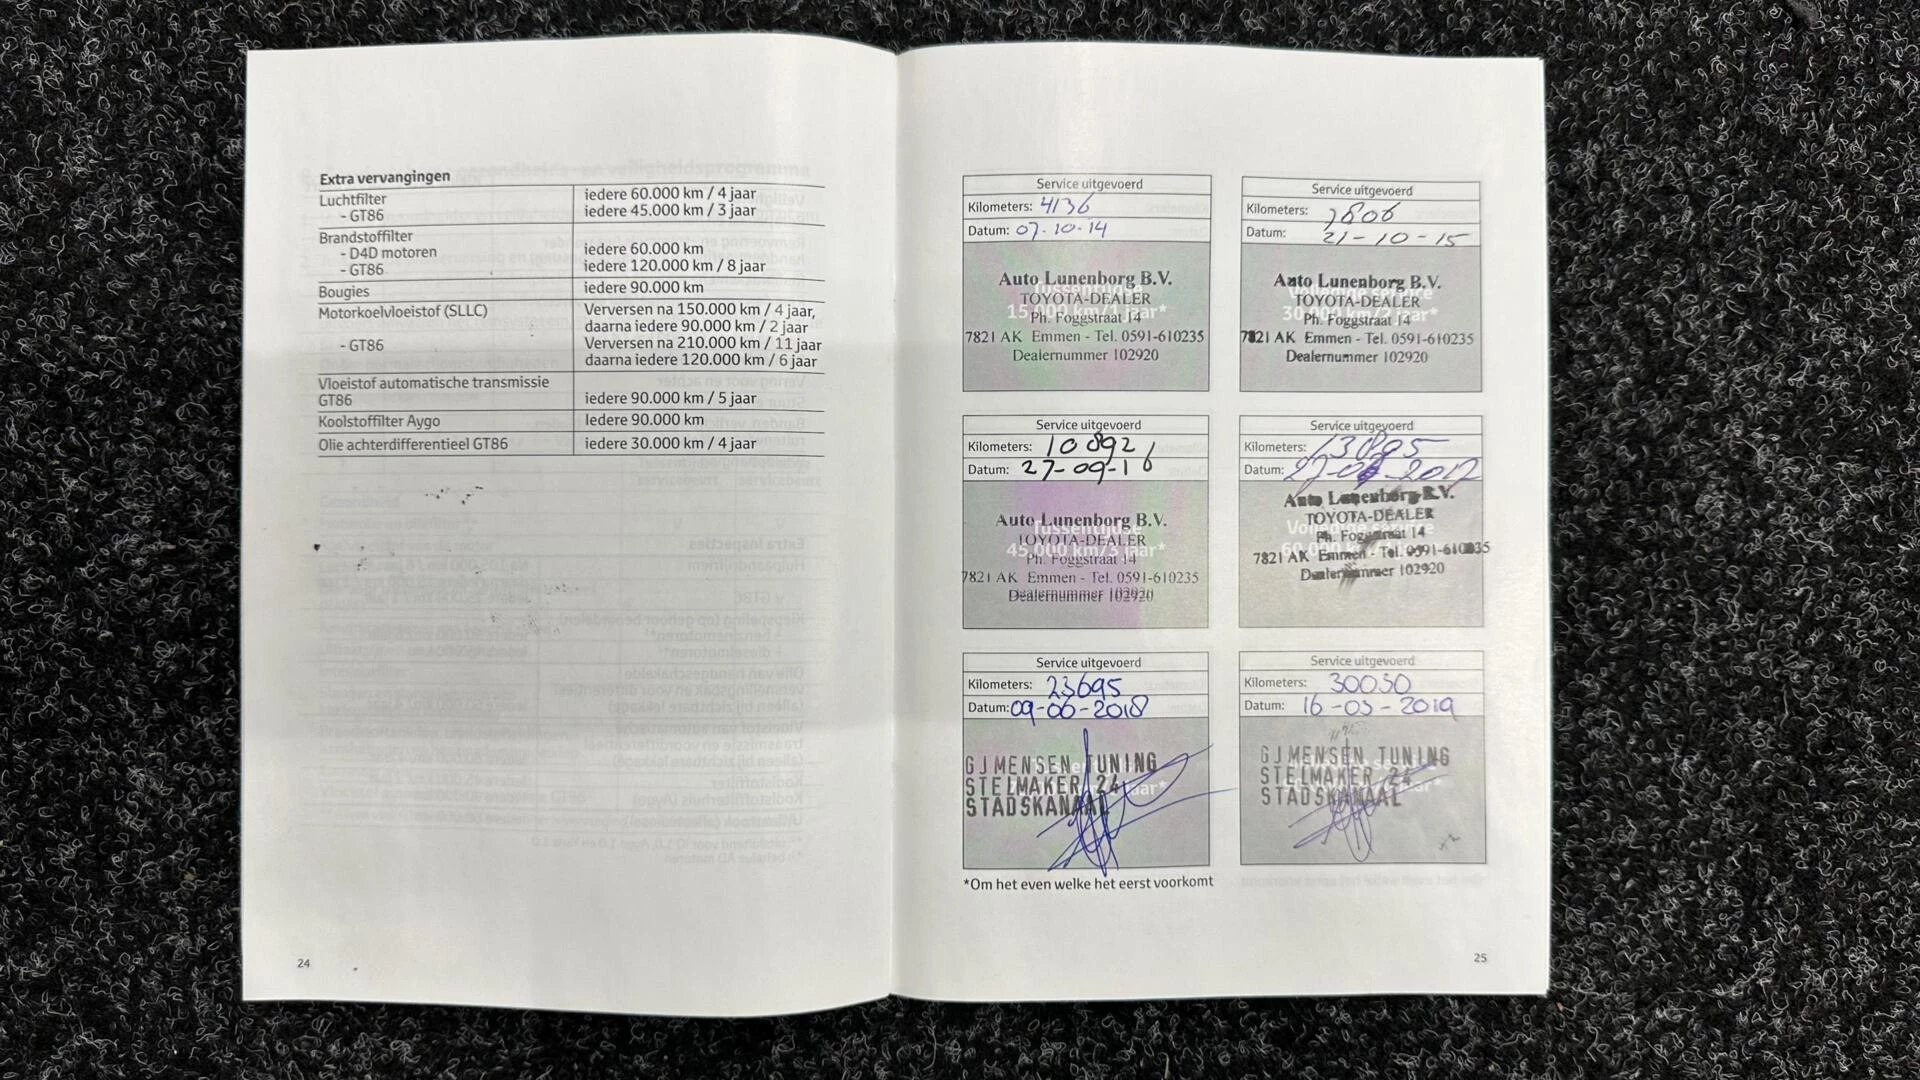 Extra vervangingen
Luchtfilter iedere 60.000 km / 4 jaar
- GT86 iedere 45.000 km / 3 jaar
Brandstoffilter
- D4D motoren iedere 60.000 km
- GT86 iedere 120.000 km / 8 jaar
Bougies iedere 90.000 km
Motorkoelvloeistof (SLLC) Verversen na 150.000 km / 4 jaar,
daarna iedere 90.000 km / 2 jaar
- GT86 Verversen na 210.000 km / 11 jaar
daarna iedere 120.000 km / 6 jaar
Vloeistof automatische transmissie
GT86 iedere 90.000 km / 5 jaar
Koolstoffilter Aygo Iedere 90.000 km
Olie achterdifferentieel GT86 iedere 30.000 km / 4 jaar
24
Service uitgevoerd
Kilometers: 4136
Datum: 07-10-14
Auto Lunenborg B.V.
TOYOTA-DEALER
15.000 km/1 jaar*
Ph. Foggstraat 14
7821 AK Emmen - Tel. 0591-610235
Dealernummer 102920
Service uitgevoerd
Kilometers: 7806
Datum: 21-10-15
Auto Lunenborg B.V.
Volledige service
TOYOTA-DEALER
30.000 km/2 jaar*
Ph. Foggstraat 14
7821 AK Emmen - Tel. 0591-610235
Dealernummer 102920
Service uitgevoerd
Kilometers: 10892
Datum: 27-09-16
Auto Lunenborg B.V.
Tussentijdse
TOYOTA-DEALER
45.000 km/3 jaar*
Ph. Foggstraat 14
7821 AK Emmen - Tel. 0591-610235
Dealernummer 102920
Service uitgevoerd
Kilometers: 13895
Datum:
Auto Lunenborg B.V.
TOYOTA-DEALER
Volledige service
Ph. Foggstraat 14
7821 AK Emmen - Tel. 0591-610235
Dealernummer 102920
Service uitgevoerd
Kilometers: 23695
Datum: 09-06-2018
GJMENSEN TUNING
STELMAKER 24
jaar*
STADSKANAAL
Service uitgevoerd
Kilometers: 30030
Datum: 16-05-2019
GJMENSEN TUNING
STELMAKER 24
jaar*
STADSKANAAL
*Om het even welke het eerst voorkomt
25